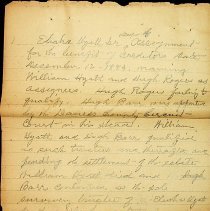 Elisha Hyatt Sr, Assignment
for the benefit of Creditors. Date
December 12 1883, naming
William Hyatt and Hugh Rogers as
assignees. Hugh Rogers failing to
qualify, Hugh Barr was appointed
by the Daviess County Circuit
Court in his stead. William
Hyatt and Hugh Barr qualified
as such trustees and thereafter and
pending the settlement of the estate
William Hyatt died and Hugh
Barr continued as the sole
surviving trustee of Elisha Hyatt